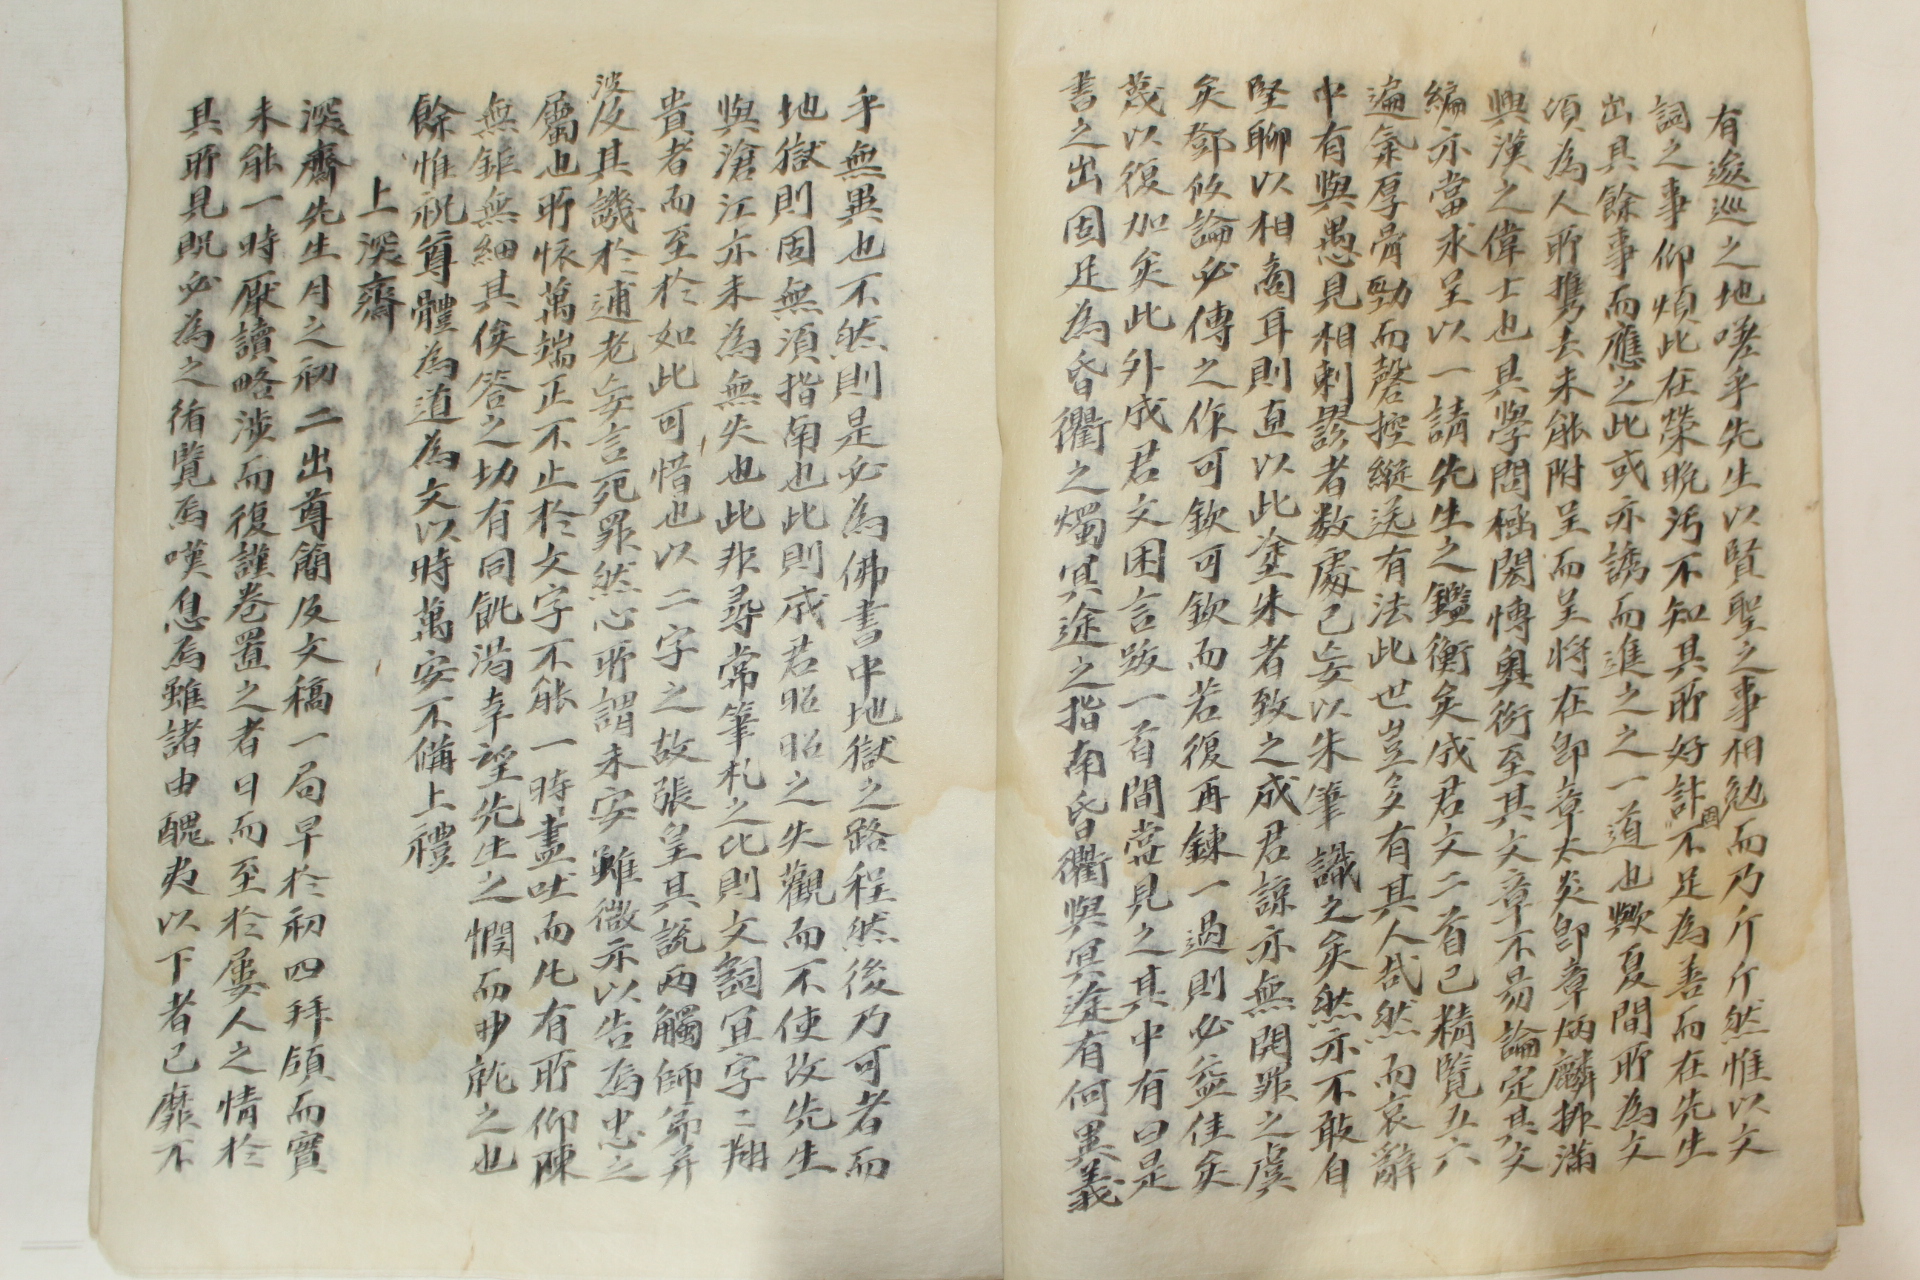 有逡巡之地嗟乎先生以賢聖之事相勉而乃斤斤然惟以文
詞之事仰煩此在榮晩汚不知其所好計固不足為善而在先生
出其餘事而應之此或亦誘而進之之一道也歟夏間所為文
須為人所携去未能附呈而呈將在卽章太炎卽章炳麟排滿
興漢之偉士也其學問極閎博奧衍至其文章不易論定其文
編亦當求呈以一請先生之鑑衡矣成君文二首已精覽五六
遍氣厚骨勁而磬控縱送有法此世豈多有其人哉然而哀辭
中有與愚見相剌謬者数處已妄以朱筆識之矣然亦不敢自
堅聊以相商耳則直以此塗朱者致之成君諒亦無開罪之虞
矣鄧攸論必傳之作可欽可欽而若復再鍊一過則必益佳矣
蔑以復加矣此外成君文困言跋一首間當見之其中有曰是
書之出固足為昏衢之燭冥途之指南昏衢與冥途有何異義
乎無異也不然則是必為佛書中地獄之路程然後乃可者而
地獄則固無須指南也此則成君昭昭之失觀而不使改先生
與滄江亦未為無失也此非尋常筆札之比則文詞冝字字翔
貴者而至於如此可惜也以二字之故張皇其說两觸師弟并
波及其譏於逋老妄言死罪然心所謂未安雖微亦以告為忠之
屬也所懷萬端正不止於文字不能一時盡吐而凡有所仰陳
無鉅無細其俟答之切有同飢渴幸望先生之憫而申能之也
餘惟祝尊體為道為文以時萬安不備上禮
上深齋
深齋先生月之初二出尊簡及文稿一局早於初四拜領而實
未能一時厭讀略涉而復謹卷置之者日而至於屡人之情於
其所見既必為之循覽焉嘆息焉雖諸由醜夷以下者已靡不